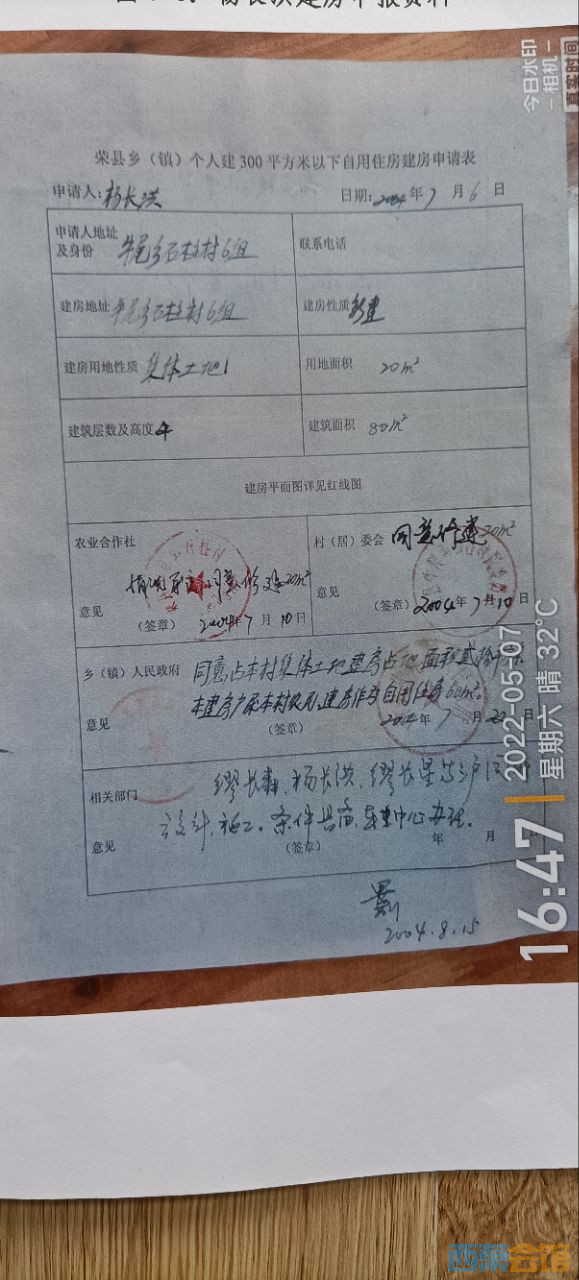 杨长洪建房申报资料
荣县乡（镇）个人建300平方米以下自用住房建房申请表
申请人：杨长洪 日期：2004年7月6日
申请人地址及身份 牛尾乡石柱村6组 联系电话
建房地址 牛尾乡石柱村6组 建房性质 新建
建房用地性质 集体土地 用地面积 20m²
建筑层数及高度 4 建筑面积 80m²
建房平面图详见红线图
农业合作社 村（居）委会 同意修建20m²
同意修建20m²
意见 意见
（签章） 2004年7月10日 （签章） 2004年7月10日
乡（镇）人民政府 同意占本村集体土地建房占地面积贰拾
本建房户系本村农户,建房作为自用住房60m².
意见 （签章） 2004年7月22日
相关部门 缪长森、杨长洪、缪长星等三户
设计、施工。条件具备,
意见 （签章） 年 月
2004.8.15
今日水印
-相机-
真实时间
16:47
2022-05-07
星期六 晴 32℃
西蔡会馆